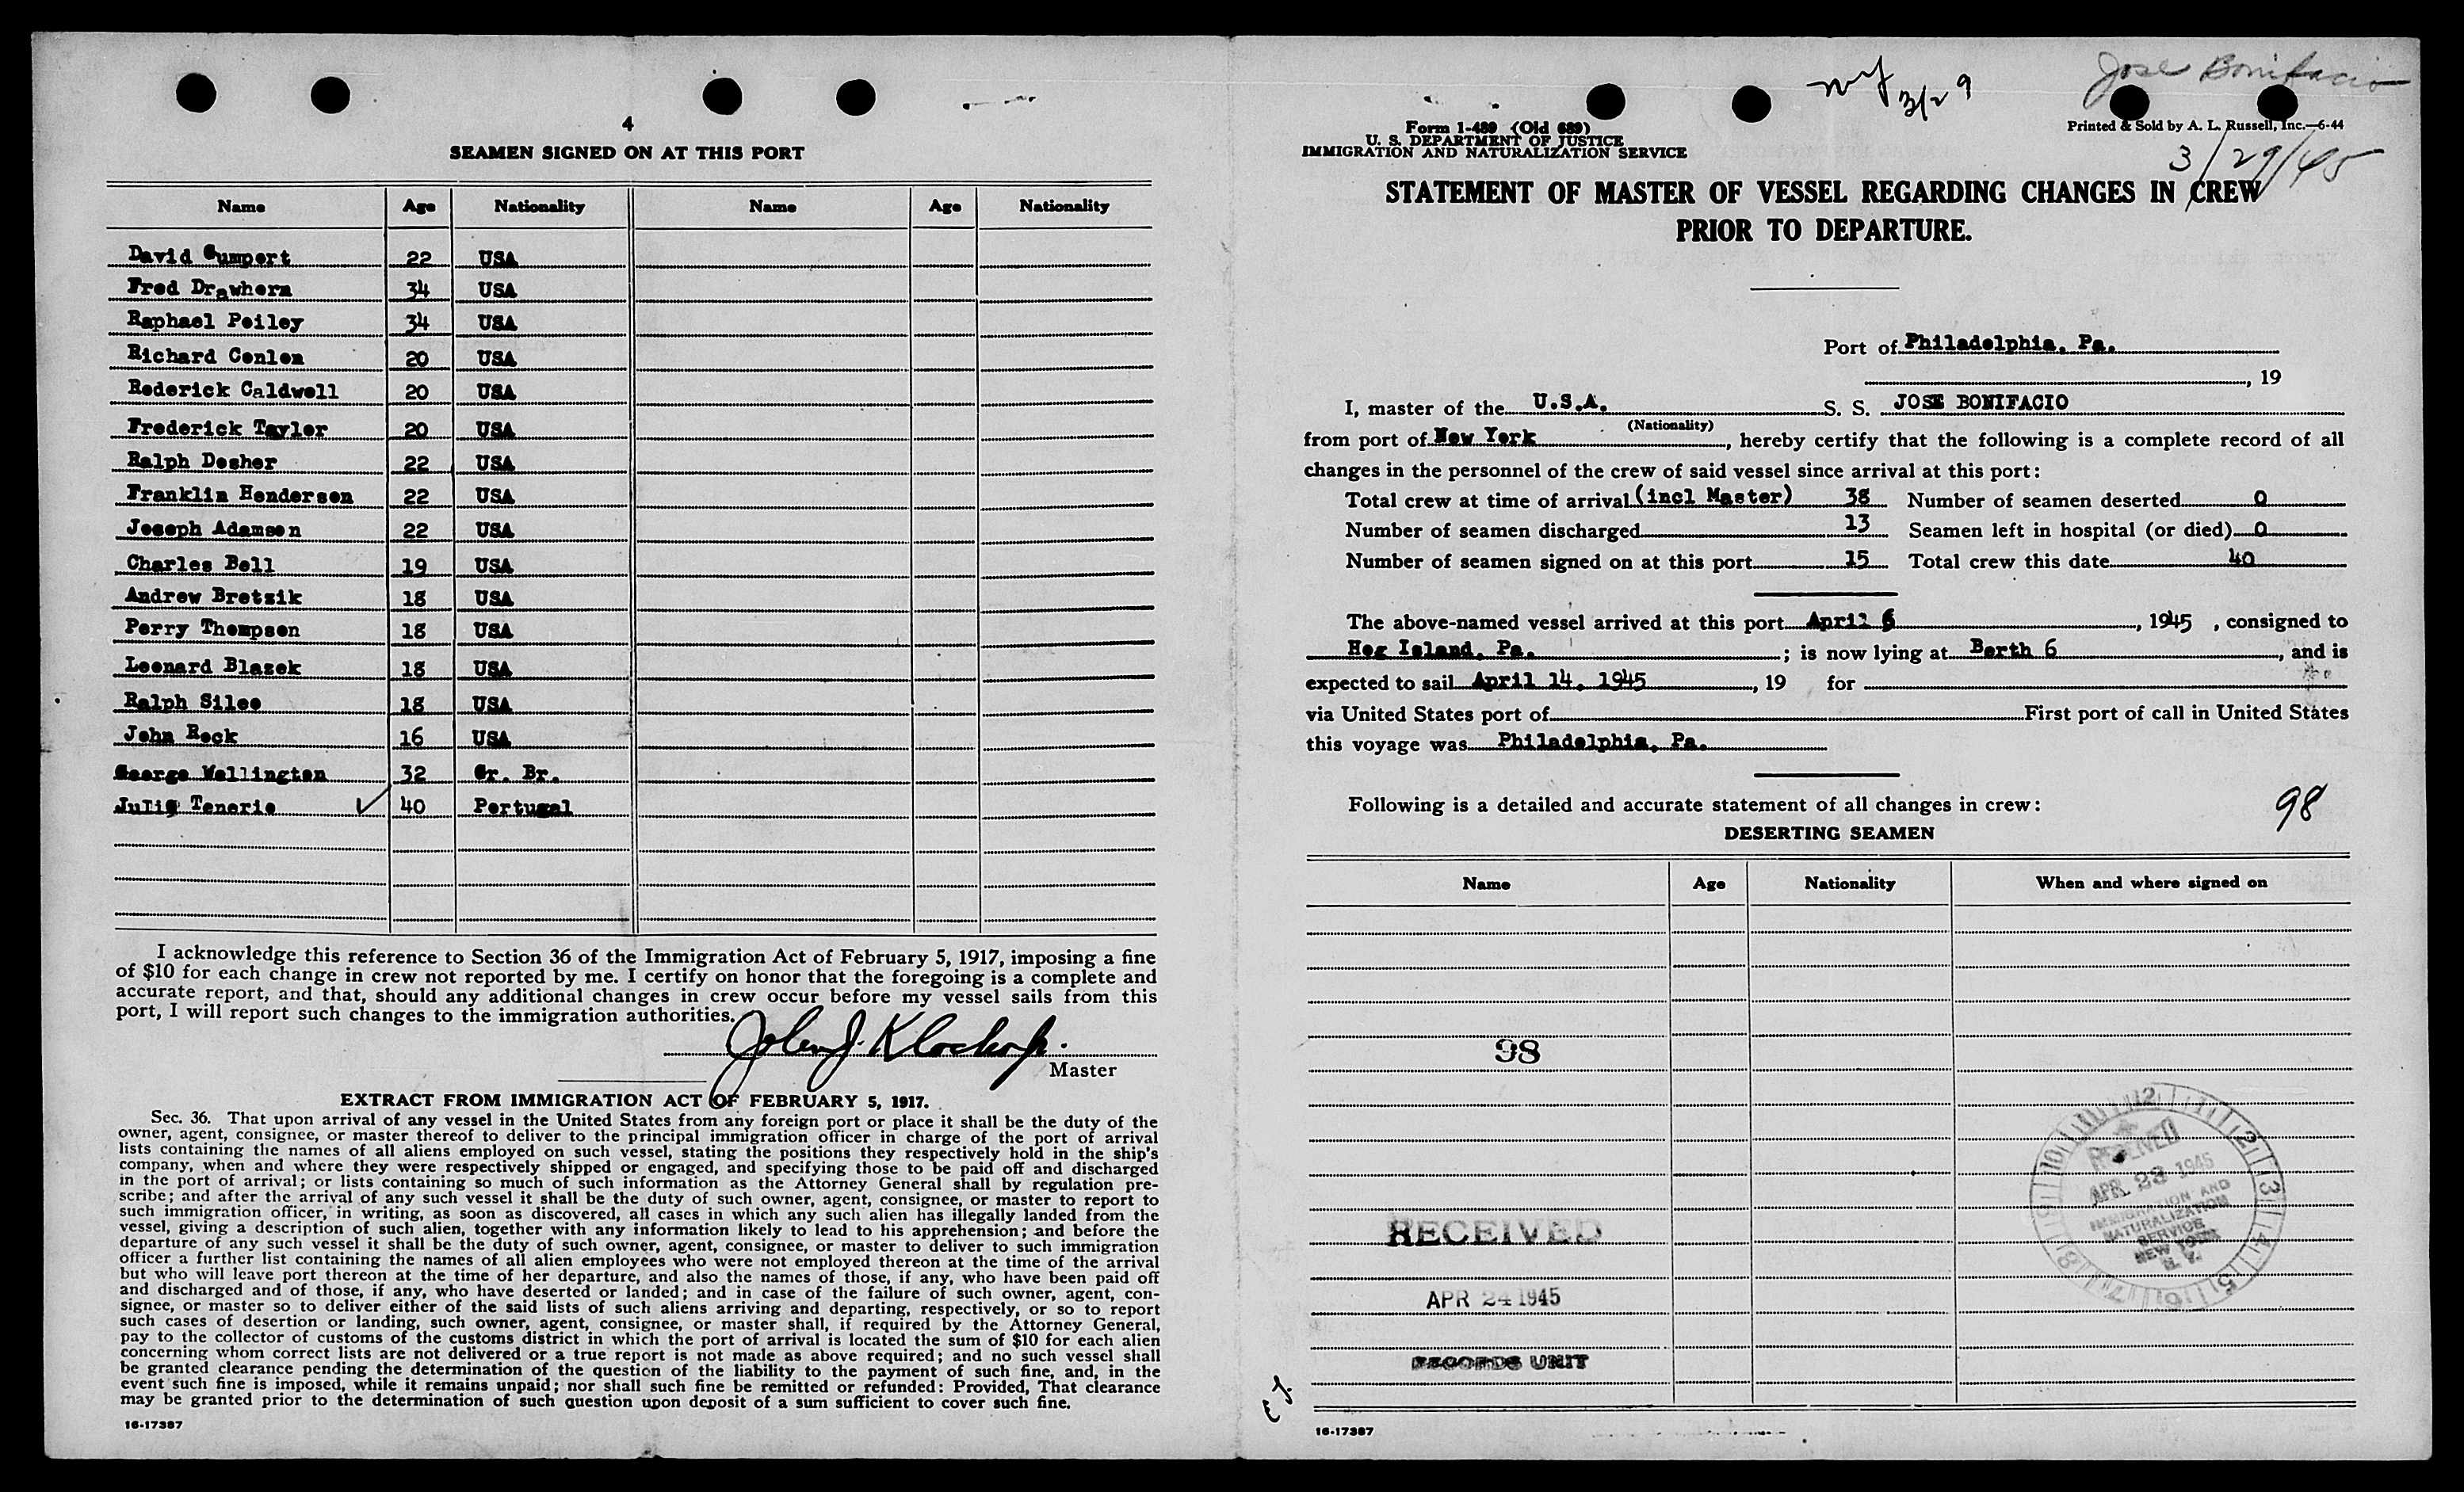 4
SEAMEN SIGNED ON AT THIS PORT
Name Age Nationality Name Age Nationality
David Gumpert 22 USA
Fred Drawhorn 34 USA
Raphael Peiley 34 USA
Richard Conlon 20 USA
Roderick Caldwell 20 USA
Frederick Taylor 20 USA
Ralph Dosher 22 USA
Franklin Henderson 22 USA
Joseph Adamson 22 USA
Charles Bell 19 USA
Andrew Bretzik 18 USA
Perry Thompson 18 USA
Leonard Blazek 18 USA
Ralph Sileo 18 USA
John Rock 16 USA
George Wellington 32 Gr. Br.
Tenorio ✓ 40 Portugal
I acknowledge this reference to Section 36 of the Immigration Act of February 5, 1917, imposing a fine
of $10 for each change in crew not reported by me. I certify on honor that the foregoing is a complete and
accurate report, and that, should any additional changes in crew occur before my vessel sails from this
port, I will report such changes to the immigration authorities.
John J.
Master
EXTRACT FROM IMMIGRATION ACT OF FEBRUARY 5, 1917.
Sec. 36. That upon arrival of any vessel in the United States from any foreign port or place it shall be the duty of the
owner, agent, consignee, or master thereof to deliver to the principal immigration officer in charge of the port of arrival
lists containing the names of all aliens employed on such vessel, stating the positions they respectively hold in the ship's
company, when and where they were respectively shipped or engaged, and specifying those to be paid off and discharged
in the port of arrival; or lists containing so much of such information as the Attorney General shall by regulation pre-
scribe; and after the arrival of any such vessel it shall be the duty of such owner, agent, consignee, or master to report to
such immigration officer, in writing, as soon as discovered, all cases in which any such alien has illegally landed from the
vessel, giving a description of such alien, together with any information likely to lead to his apprehension; and before the
departure of any such vessel it shall be the duty of such owner, agent, consignee, or master to deliver to such immigration
officer a further list containing the names of all alien employees who were not employed thereon at the time of the arrival
but who will leave port thereon at the time of her departure, and also the names of those, if any, who have been paid off
and discharged and of those, if any, who have deserted or landed; and in case of the failure of such owner, agent, con-
signee, or master so to deliver either of the said lists of such aliens arriving and departing, respectively, or so to report
such cases of desertion or landing, such owner, agent, consignee, or master shall, if required by the Attorney General,
pay to the collector of customs of the customs district in which the port of arrival is located the sum of $10 for each alien
concerning whom correct lists are not delivered or a true report is not made as above required; and no such vessel shall
be granted clearance pending the determination of the question of the liability to the payment of such fine, and, in the
event such fine is imposed, while it remains unpaid; nor shall such fine be remitted or refunded: Provided, That clearance
may be granted prior to the determination of such question upon deposit of a sum sufficient to cover such fine.
16-17387
ny 3/29
Jose Bonifacio
3/29/45
Form I-489 (Old 689)
U. S. DEPARTMENT OF JUSTICE
IMMIGRATION AND NATURALIZATION SERVICE
Printed & Sold by A. L. Russell, Inc.—6-44
STATEMENT OF MASTER OF VESSEL REGARDING CHANGES IN CREW
PRIOR TO DEPARTURE.
Port of Philadelphia, Pa.
, 19
I, master of the U.S.A. S. S. JOSE BONIFACIO
(Nationality)
from port of New York, hereby certify that the following is a complete record of all
changes in the personnel of the crew of said vessel since arrival at this port:
Total crew at time of arrival (incl Master) 38 Number of seamen deserted 0
Number of seamen discharged 13 Seamen left in hospital (or died) 0
Number of seamen signed on at this port 15 Total crew this date 40
The above-named vessel arrived at this port April 6, 1945, consigned to
Hog Island, Pa.; is now lying at Berth 6, and is
expected to sail April 14, 1945, 19 for
via United States port of First port of call in United States
this voyage was Philadelphia, Pa.
Following is a detailed and accurate statement of all changes in crew:
98
DESERTING SEAMEN
Name Age Nationality When and where signed on
98
RECEIVED
APR 24 1945
RECORDS UNIT
RECEIVED
APR 23 1945
IMMIGRATION AND
NATURALIZATION
SERVICE
NEW YORK
N. Y.
16-17387